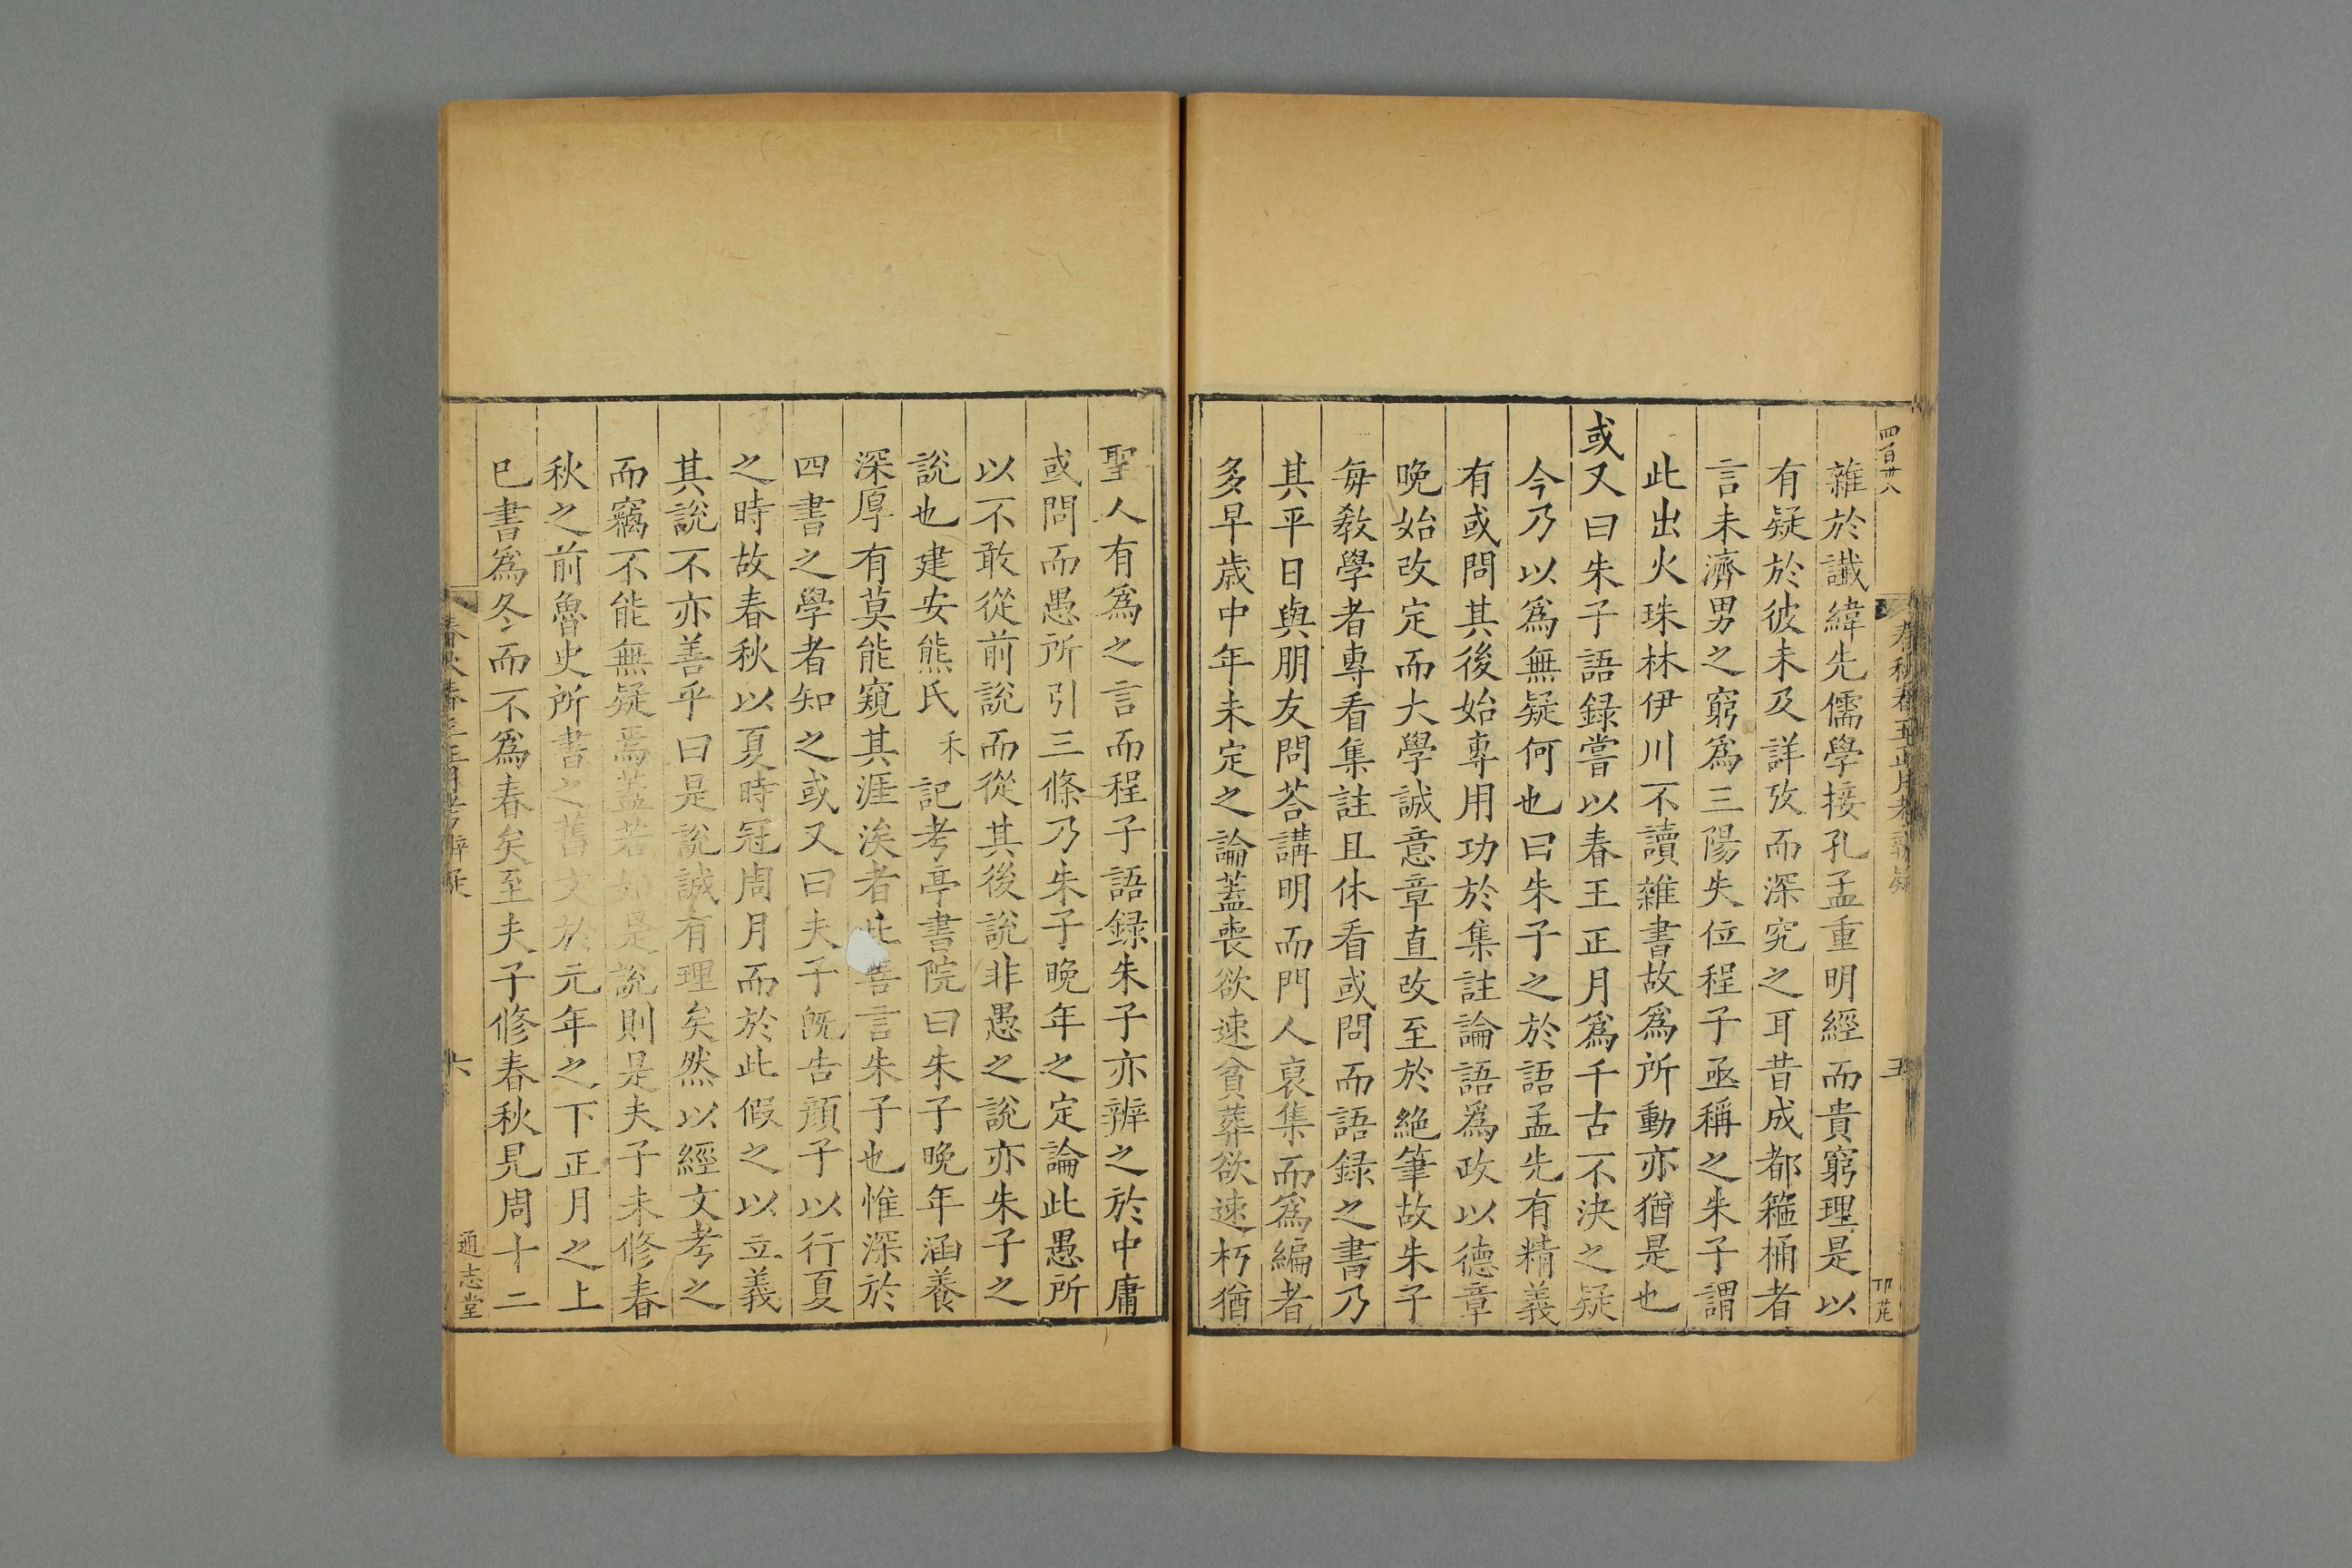 四百廿八
春秋春王正月考辨疑
五
雜於讖緯先儒學接孔孟重明經而貴窮理是以
有疑於彼未及詳攷而深究之耳昔成都籀桶者
言未濟男之窮爲三陽失位程子亟稱之朱子謂
此出火珠林伊川不讀雜書故爲所動亦猶是也
或又曰朱子語録嘗以春王正月爲千古不決之疑
今乃以爲無疑何也曰朱子之於語孟先有精義
有或問其後始專用功於集註論語爲政以德章
晚始改定而大學誠意章直改至於絶筆故朱子
每敎學者專看集註且休看或問而語録之書乃
其平日與朋友問荅講明而門人裒集而爲編者
多早歲中年未定之論蓋喪欲速貧葬欲速朽猶
聖人有爲之言而程子語録朱子亦辨之於中庸
或問而愚所引三條乃朱子晚年之定論此愚所
以不敢從前說而從其後說非愚之說亦朱子之
說也建安熊氏禾記考亭書院曰朱子晚年涵養
深厚有莫能窺其涯涘者此善言朱子也惟深於
四書之學者知之或又曰夫子旣告顔子以行夏
之時故春秋以夏時冠周月而於此假之以立義
其說不亦善乎曰是說誠有理矣然以經文考之
而竊不能無疑焉蓋若如是說則是夫子未修春
秋之前魯史所書之舊文於元年之下正月之上
巳書爲冬而不爲春矣至夫子修春秋見周十二
春秋春王正月考辨疑
六
通志堂